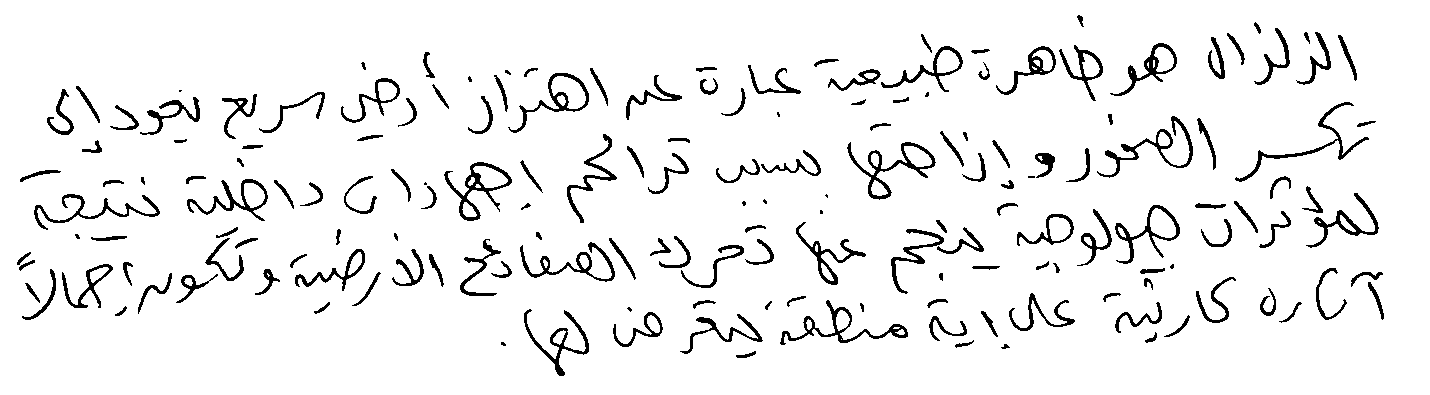 الزلزال هو ظاهرة طبيعية عبارة عن اهتزاز أرضي سريع يعود إلى
تكسر الصخور وإزاحتها بسبب تراكم اجهادات داخلية نتيجة
لمؤثرات جيولوجية ينجم عنها تحرك الصفائح الأرضية وتكون إجمالاً
آثاره كارثية على اية منطقة يتعرض لها.